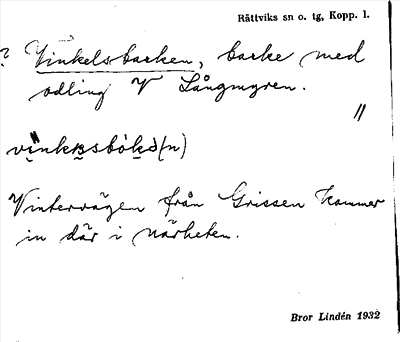 Rättviks sn o. tg, Kopp. l.
? Vinkelsbacken, backe med
odling V Långmyren.
//
Vintervägen från Grissen kommer
in där i närheten.
Bror Lindén 1932